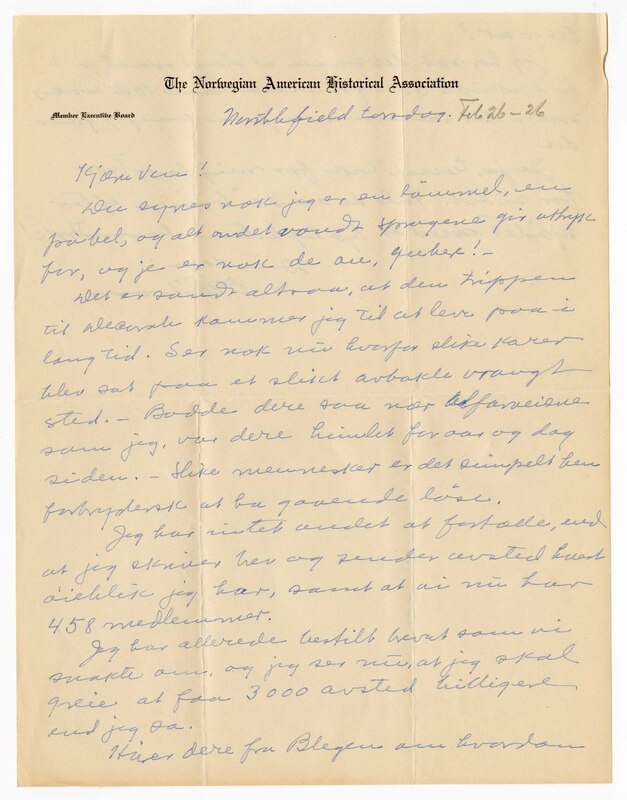 The Norwegian American Historical Association
Member Executive Board
Northfield torsdag. Feb 26-26
Kjære Ven!
Du synes nok jeg er en lömmel, en
pöbel, og alt andet vondt sprogene gir uttryk
for, og je er nok de au, guber! -
Det er sandt altsaa, at den trippen
til Decorah kommer jeg til at leve paa i
lang tid. Ser nok nu hvorfor slike karer
blev sat paa et slikt avbakle vrangt
sted. - Bodde dere saa nær alfarveiene
som jeg, var dere himlet for aar og dag
siden. - Slike mennesker er det simpelt hen
forbrydersk at ha gaaende löse.
Jeg har intet andet at fortælle, end
at jeg skriver brev og sender avsted hvert
öieblik jeg har, samt at vi nu har
458 medlemmer.
Jeg har allerede bestilt brevet som vi
snakte om, og jeg ser nu, at jeg skal
greie at faa 3000 avsted billigere
end jeg sa.
Hörer dere fra Blegen om hvordan